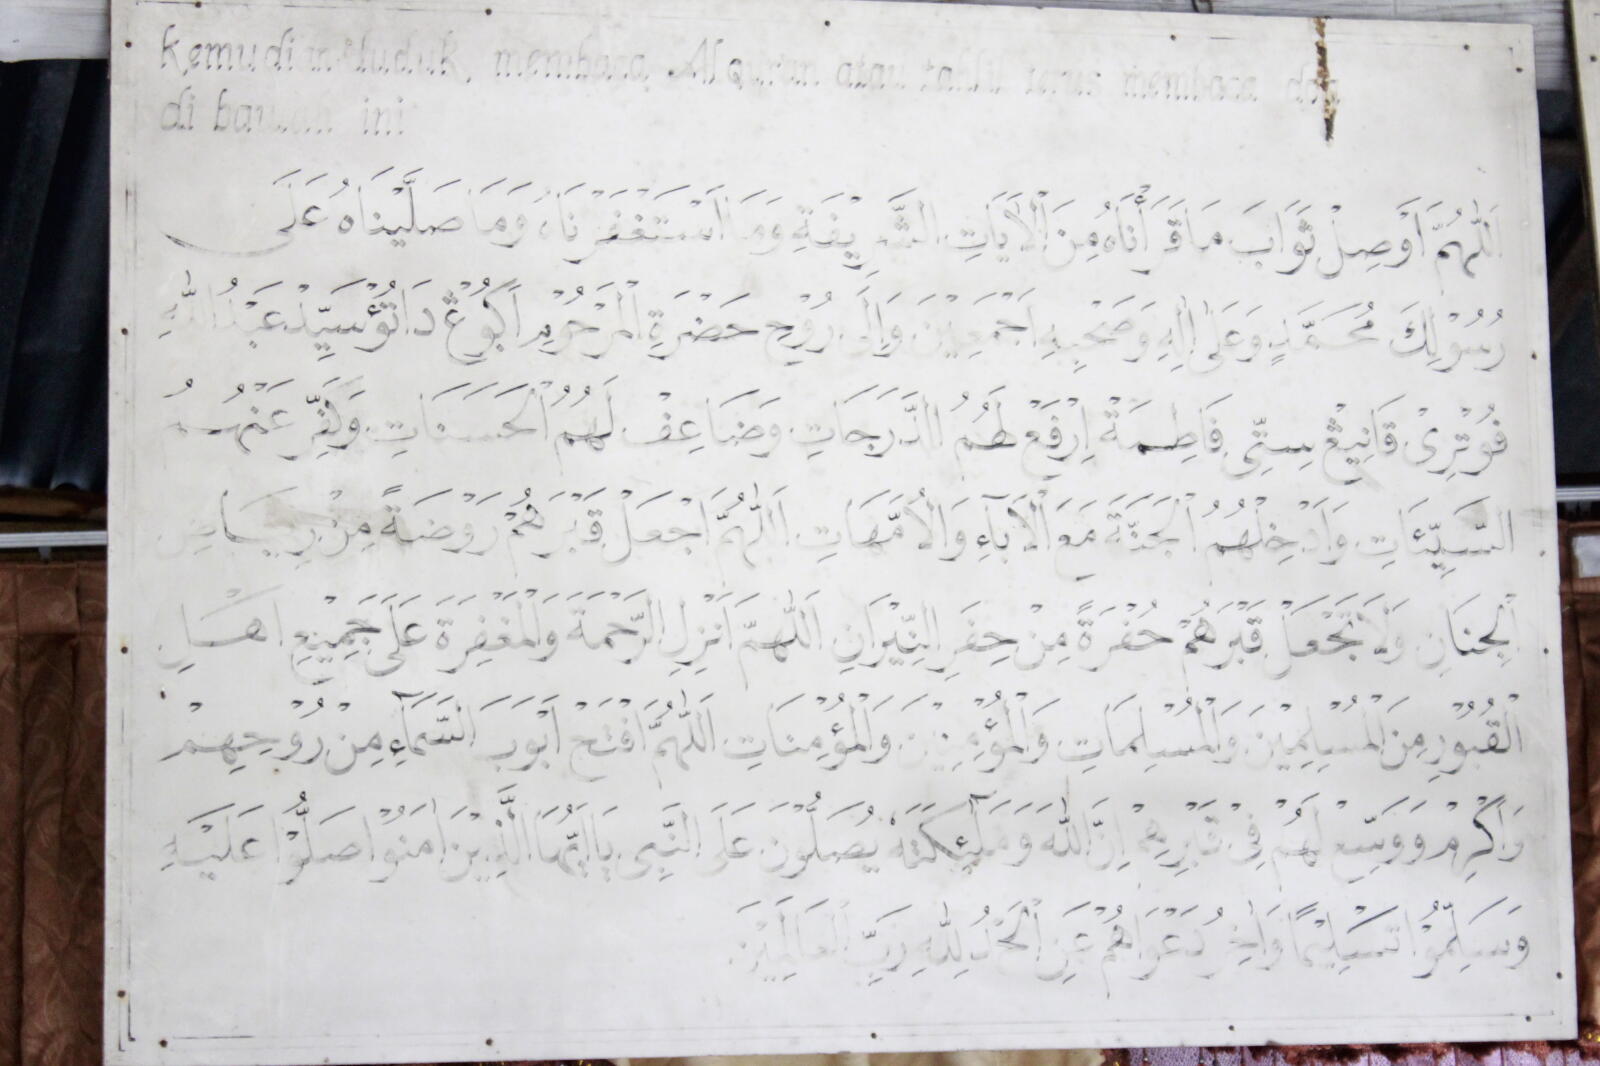 Kemudian duduk, membaca Al quran atau tahlil terus membaca doa
di bawah ini
اَللّٰهُمَّ اَوْصِلْ ثَوَابَ مَاقَرَأْنَاهُ مِنَ اْلآيَاتِ الشَّرِيْفَةِ وَمَا اسْتَغْفَرْنَاهُ وَمَا صَلَّيْنَاهُ عَلَى
رَسُوْلِكَ مُحَمَّدٍ وَعَلَى اٰلِهِ وَصَحْبِهِ اَجْمَعِيْنَ وَاِلَى رُوْحِ حَضْرَةِ الْمَرْحُوْمِ اَكُوْڠْ دَاتُؤْ سَيِّدْ عَبْدُ اللّٰهِ
فُوْتِرِىْ قَانِيْڠْ سِتِّى فَاطِمَةْ اِرْفَعْ لَهُمُ الدَّرَجَاتِ وَضَاعِفْ لَهُمُ الْحَسَنَاتِ وَكَفِّرْ عَنْهُمُ
السَّيِّئَاتِ وَاَدْخِلْهُمُ الْجَنَّةَ مَعَ اْلآبَاءِ وَاْلاُمَّهَاتِ اَللّٰهُمَّ اجْعَلْ قَبْرَهُمْ رَوْضَةً مِنْ رِيَاضِ
الْجِنَانِ وَلَا تَجْعَلْ قَبْرَهُمْ حُفْرَةً مِنْ حِفَرِ النِّيْرَانِ اَللّٰهُمَّ اَنْزِلِ الرَّحْمَةَ وَالْمَغْفِرَةَ عَلَى جَمِيْعِ اَهْلِ
الْقُبُوْرِ مِنَ الْمُسْلِمِيْنَ وَالْمُسْلِمَاتِ وَالْمُؤْمِنِيْنَ وَالْمُؤْمِنَاتِ اَللّٰهُمَّ افْتَحْ اَبْوَبَ السَّمَآءِ مِنْ رُوْحِهِمْ
وَاَكْرِمْ وَوَسِّعْ لَهُمْ فِىْ قَبْرِهِمْ اِنَّ اللّٰهَ وَمَلَآئِكَتَهُ يُصَلُّوْنَ عَلَى النَّبِى يَااَيُّهَا الَّذِيْنَ اٰمَنُوْا صَلُّوْا عَلَيْهِ
وَسَلِّمُوْا تَسْلِيْمًا وَاٰخِرُ دَعْوَاهُمْ عَنِ الْحَمْدُ لِلّٰهِ رَبِّ الْعَالَمِيْنَ